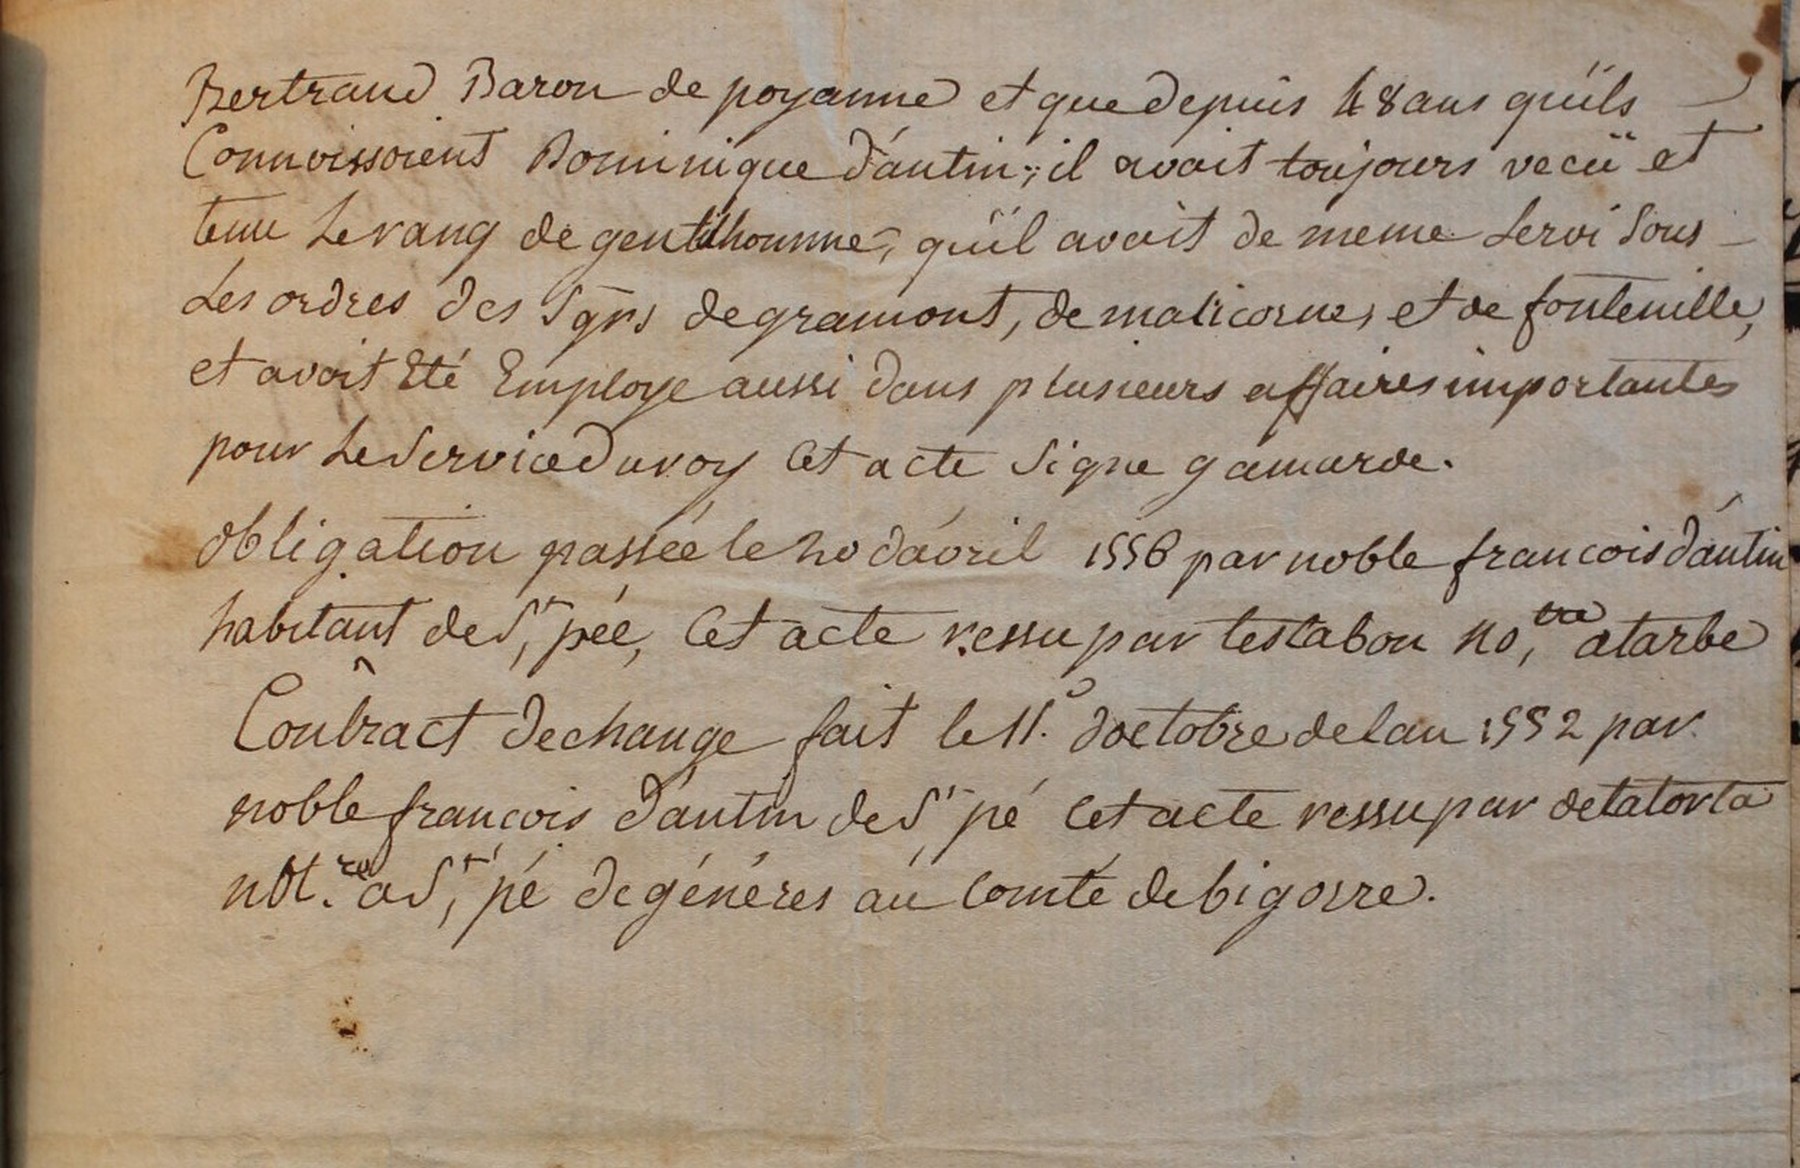 Bertrand Baron de poyanne et que depuis 48 ans qu'ils
Connoissoient Dominique d'antin, il avoit toujours vecü et
tenu Le rang de gentilhomme, qu'il avoit de meme Servi Sous
Les ordres des Sgrs de gramont, de malicorne, et de fontenille,
et avoit Eté Employe aussi dans plusieurs affaires importantes
pour Le Service Du roy Cet acte Signe gamarde.
obligation passée le 20 d'avril 1556 par noble francois d'antin
habitant de St, pée, Cet acte ressu par testabon no,tre a tarbe
Contract dechange fait le 11.e doctobre de lan 1552 par
noble francois d'antin de St pé Cet acte ressu par de latorta
not.re a St, pé de généres au Comté de bigorre.